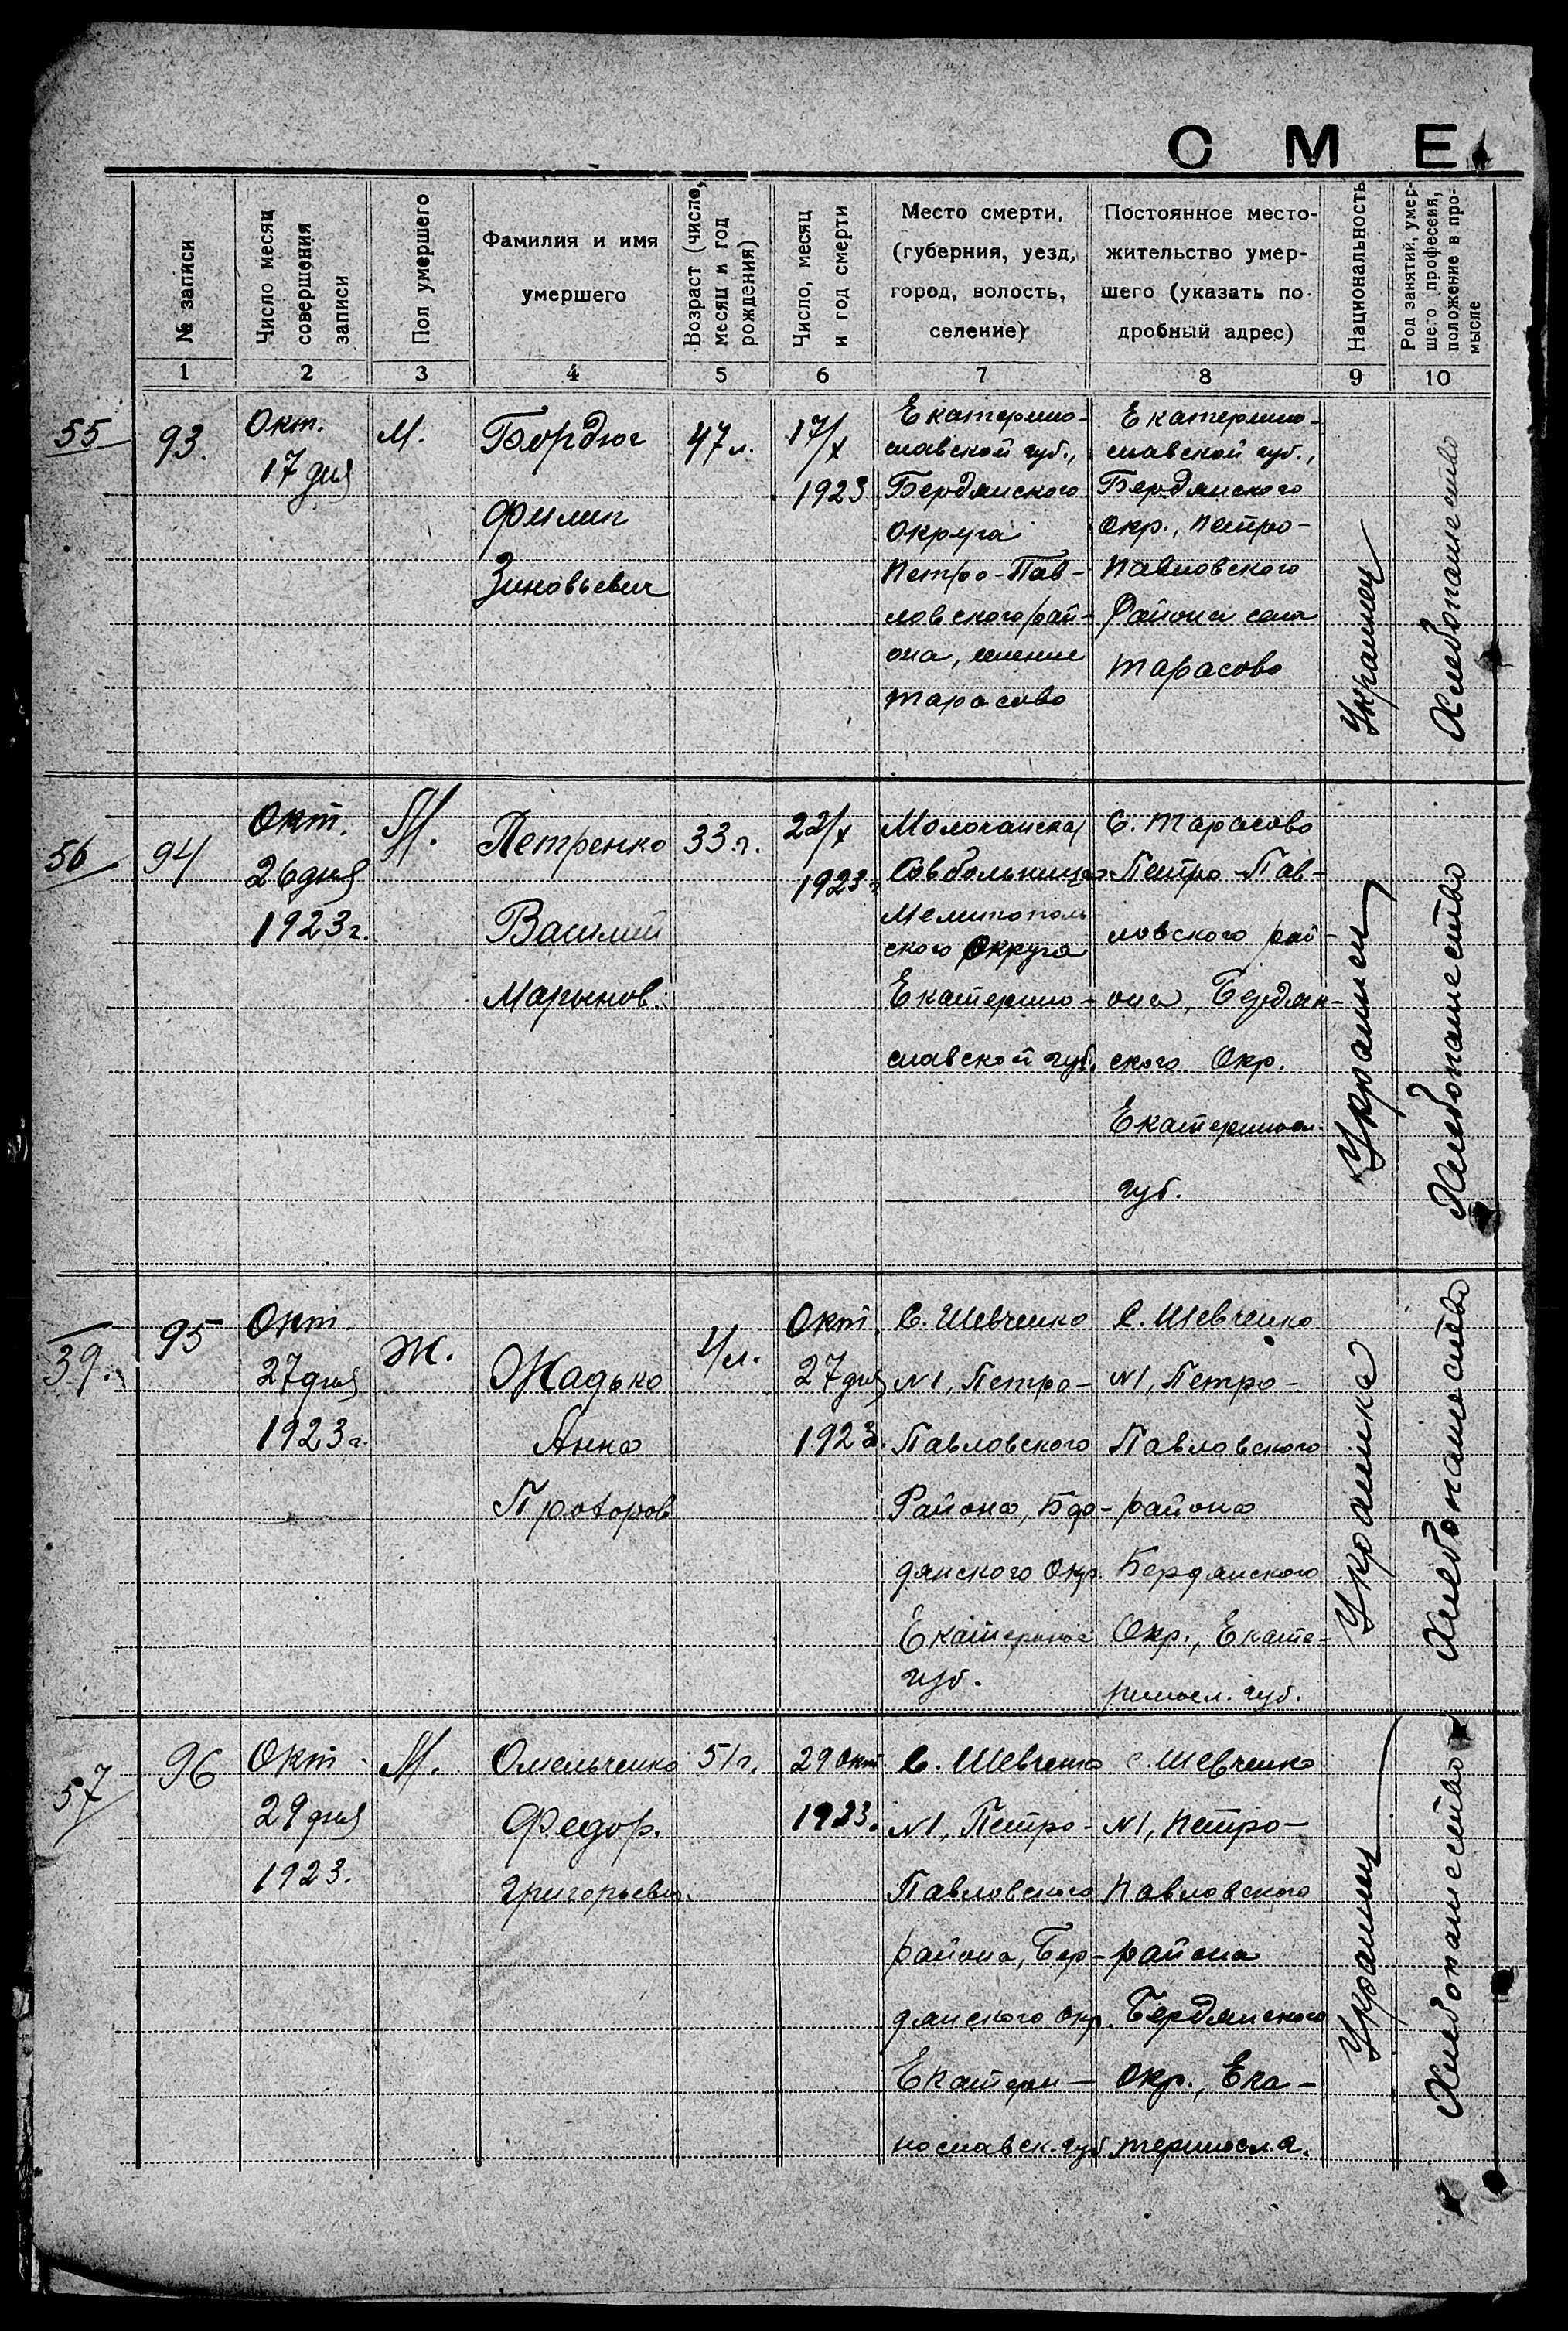 СМЕ
№ записи
Число месяц
совершения
записи
Пол умершего
Фамилия и имя
умершего
Возраст (число,
месяц и год
рождения)
Число, месяц
и год смерти
Место смерти,
(губерния, уезд,
город, волость,
селение)
Постоянное место-
жительство умер-
шего (указать по-
дробный адрес)
Национальность
Род занятий, умер-
шего професеия,
положение в про-
мысле
1 2 3 4 5 6 7 8 9 10
55
93.
Окт.
17 дня
М.
Бордюг
Филип
Зиновьевич
47 л.
17/X
1923
Екатерино-
славской губ.,
Бердянского
Округа
Петро-Пав-
ловского рай-
она, селение
Тарасово
Екатерино-
славской губ.,
Бердянского
Окр., Петро-
Павловского
Района села
Тарасово
Украинец
Хлебопашество
56
94
Окт.
26 дня
1923 г.
М.
Петренко
Василий
Мартынов.
33 г.
22/X
1923 г.
Молочанская
Совбольница
Мелитополь
ского Округа
Екатерино-
славской губ.
С. Тарасово
Петро-Пав-
ловского рай-
она, Бердян-
ского Окр.
Екатериносл.
губ.
Украинец
Хлебопашество
39.
95
Окт.
27 дня
1923 г.
Ж.
Жадько
Анна
4 л.
Окт.
27 дня
1923.
С. Шевченко
N1, Петро-
Павловского
Района, Бер-
дянского Окр.
Екатеринос
губ.
С. Шевченко
N1, Петро-
Павловского
района
Бердянского
Окр., Екате-
риносл. губ.
Украинка
Хлебопашество
57
96
Окт
29 дня
1923.
М.
Омельченко
Федор.
Григорьевич.
51 г.
29 окт
1923.
С. Шевченко
N1, Петро-
Павловского
района, Бер-
дянского окр.
Екатери-
нославск. губ
с. Шевченко
N1, Петро-
Павловского
района
Бердянского
Окр., Ека-
териносл.
Украинец
Хлебопашество